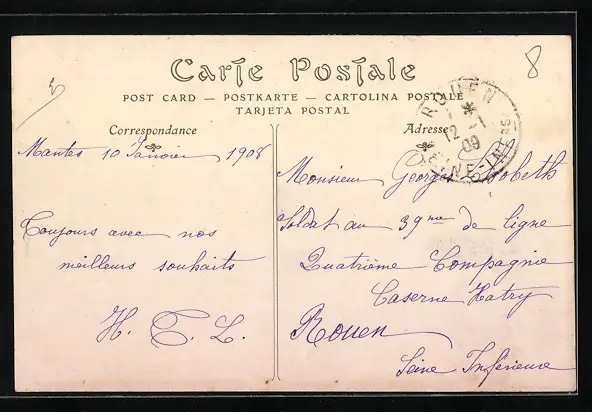 8
Carte Postale
POST CARD — POSTKARTE — CARTOLINA POSTALE
TARJETA POSTAL
Correspondance
Adresse
ROUEN
12 -1
09
SEINE-INFRE
Mantes 10 Janvier 1908
Toujours avec nos
meilleurs souhaits
H. T. L.
Monsieur Georges
Soldat au 39me de ligne
Quatrième Compagnie
Caserne Hatry
Rouen
Seine Inférieure